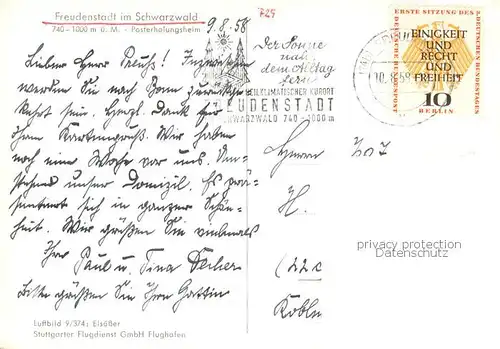 Freudenstadt im Schwarzwald
740 - 1000 m ü. M. - Posterholungsheim
9.8.58
725
Lieber Herr Preuß! Inzwischen
werden Sie nach Bonn zurückge-
kehrt sein. Herzl. Dank für
Ihren Kartengruß. Wir haben
noch eine Woche vor uns. Um-
stehend unser Domizil. Es prä-
sentiert sich in ganzer Schön-
heit. Wir grüßen Sie vielmals
Ihre
Paul u. Tina
Bitte grüßen Sie Ihre Gattin
Luftbild 9/374: Elsäßer
Stuttgarter Flugdienst GmbH Flughafen
Der Sonne
nah
dem Alltag
fern
HEILKLIMATISCHER KURORT
FREUDENSTADT
SCHWARZWALD 740-1000 m
10.8.58
ERSTE SITZUNG DES 3. DEUTSCHEN BUNDESTAGES
DEUTSCHE BUNDESPOST
„EINIGKEIT
UND
RECHT
UND
FREIHEIT
10
BERLIN
Herrn
H.
(22c
Köln
privacy protection
Datenschutz